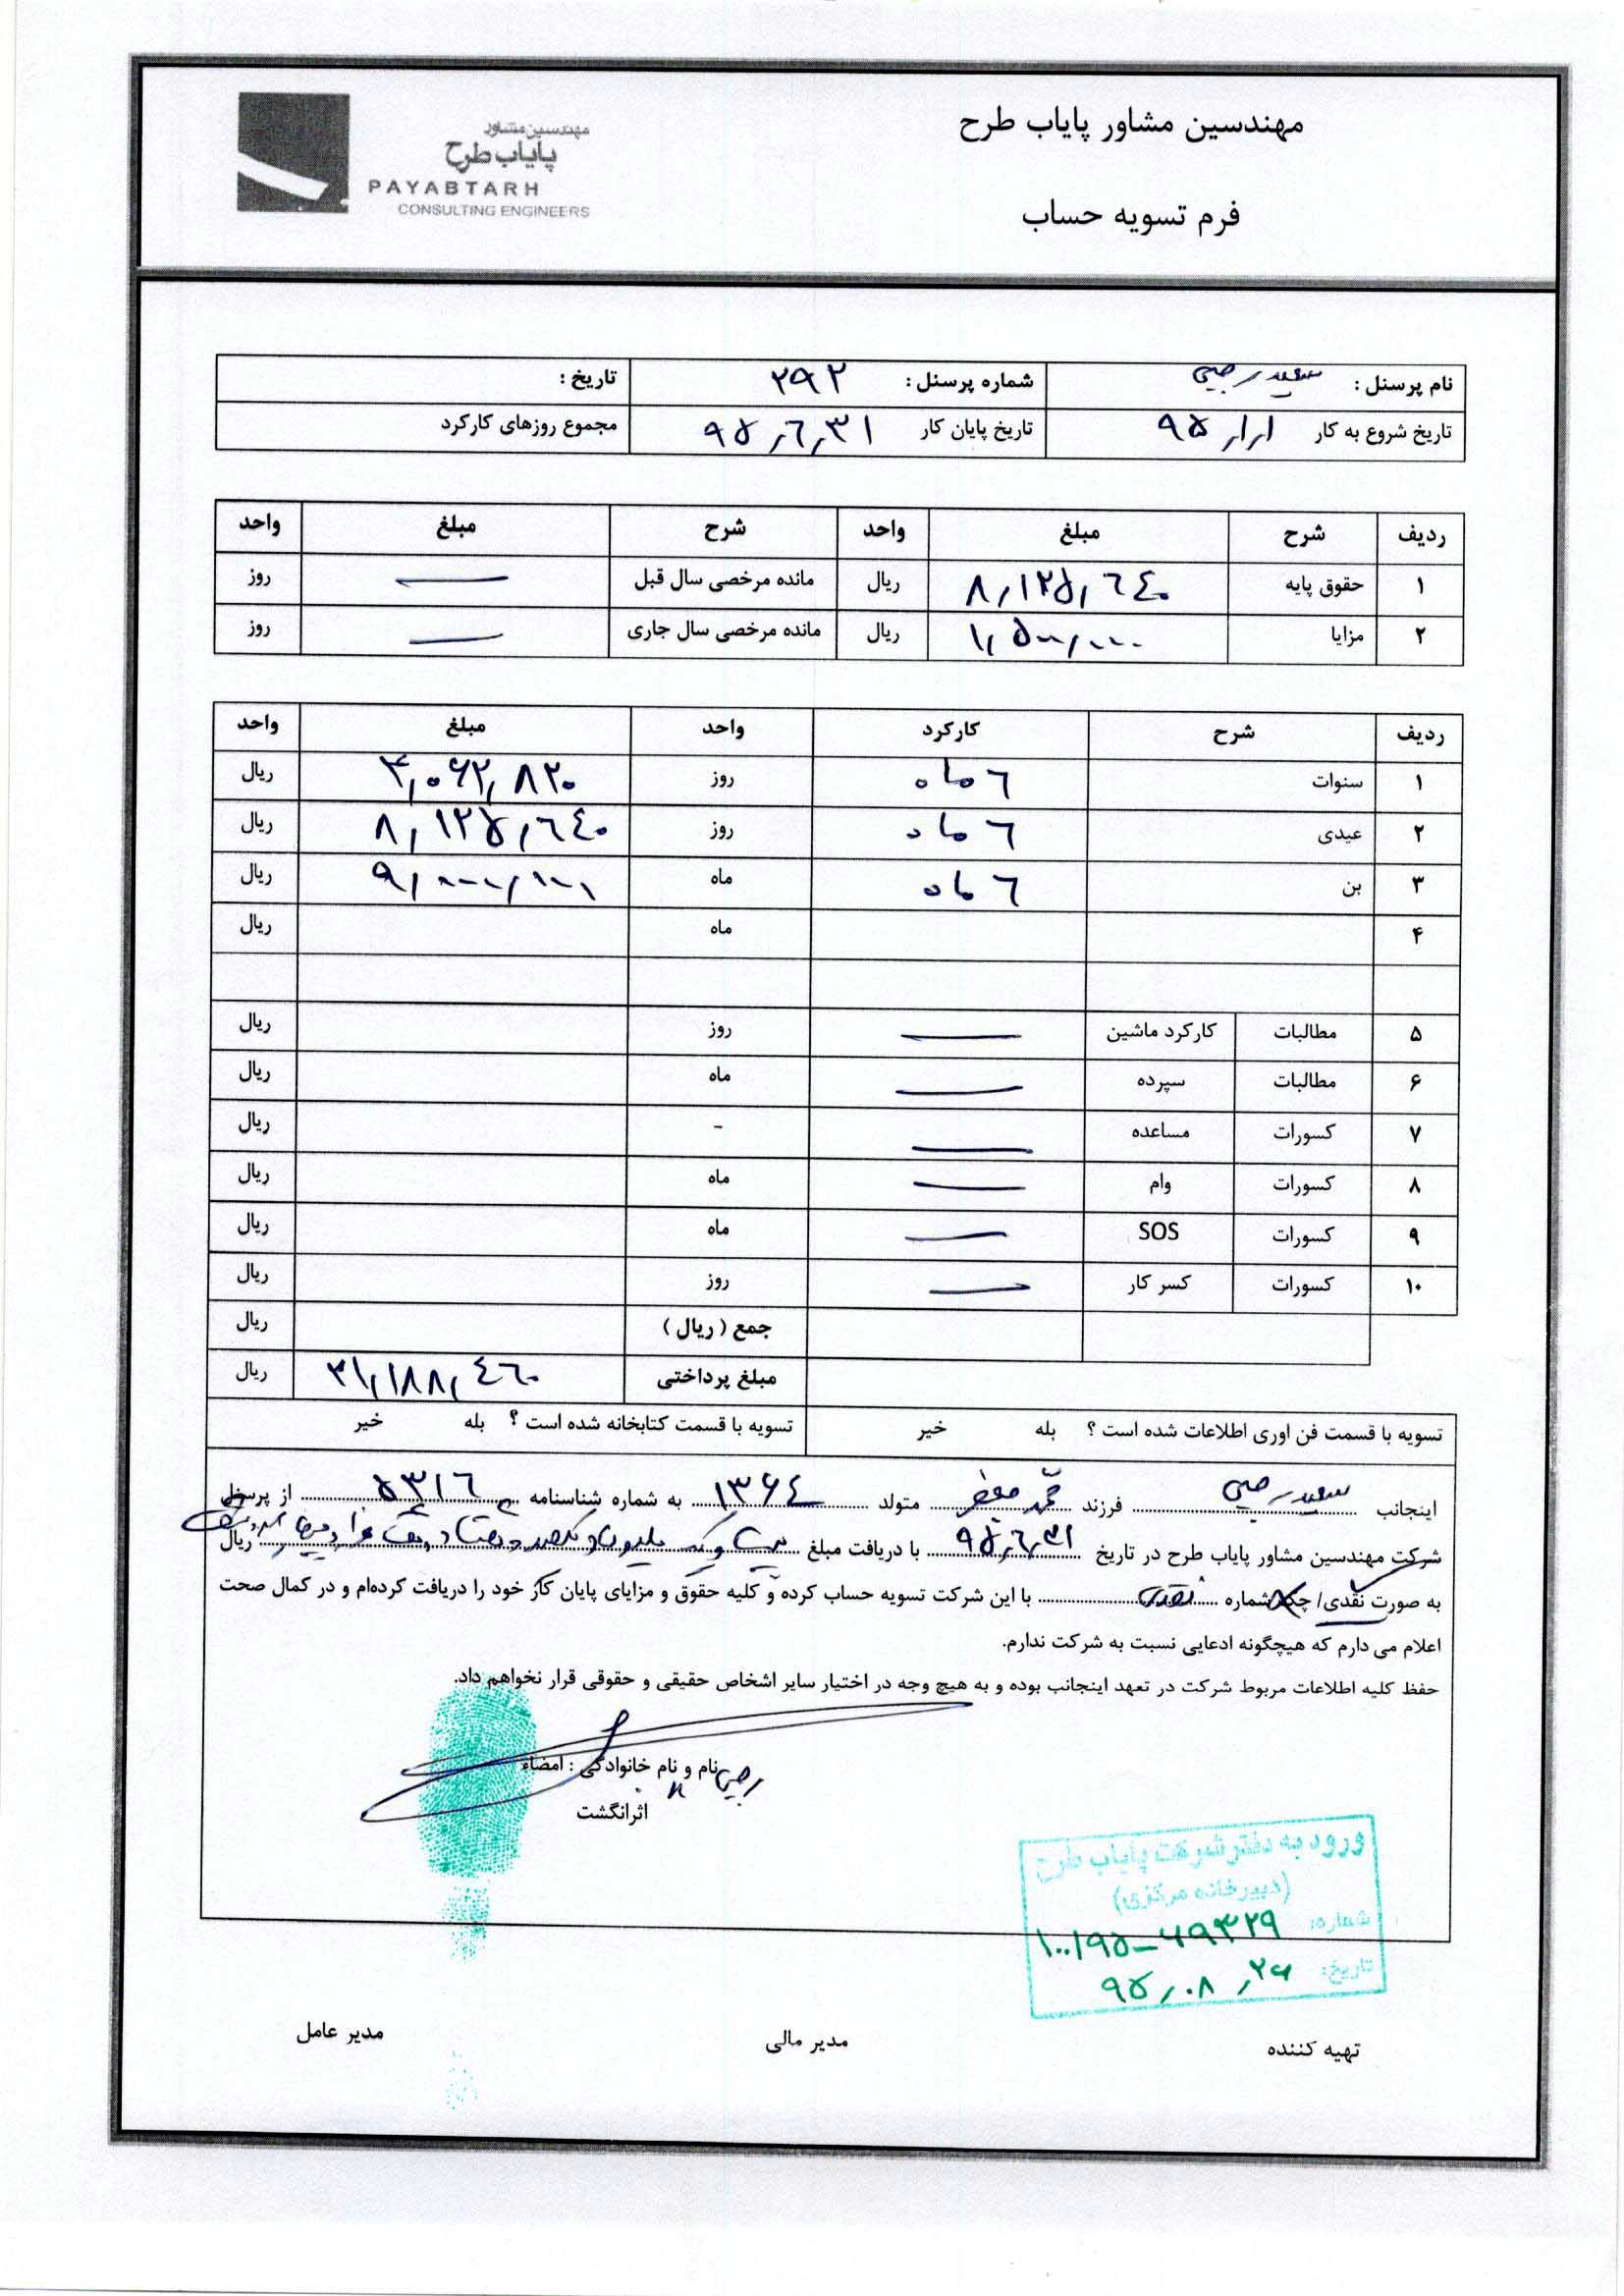 مهندسین مشاور پایاب طرح
فرم تسویه حساب
مهندسین مشاور
پایاب طرح
PAYABTARH
CONSULTING ENGINEERS
نام پرسنل : سعید رجبی شماره پرسنل : ۲۹۲ تاریخ :
تاریخ شروع به کار ۹۵/۱/۱ تاریخ پایان کار ۹۵/۶/۳۱ مجموع روزهای کارکرد
ردیف شرح مبلغ واحد شرح مبلغ واحد
۱ حقوق پایه ۸,۱۲۵,۶۴۰ ریال مانده مرخصی سال قبل — روز
۲ مزایا ۱,۵۰۰,۰۰۰ ریال مانده مرخصی سال جاری — روز
ردیف شرح کارکرد واحد مبلغ واحد
۱ سنوات ۶ ماه روز ۴,۰۶۲,۸۲۰ ریال
۲ عیدی ۶ ماه روز ۸,۱۲۵,۶۴۰ ریال
۳ بن ۶ ماه ماه ۹,۰۰۰,۰۰۰ ریال
۴ ماه ریال
۵ مطالبات کارکرد ماشین — روز ریال
۶ مطالبات سپرده — ماه ریال
۷ کسورات مساعده — - ریال
۸ کسورات وام — ماه ریال
۹ کسورات SOS — ماه ریال
۱۰ کسورات کسر کار — روز ریال
جمع ( ریال ) ریال
مبلغ پرداختی ۲۱,۱۸۸,۴۶۰ ریال
تسویه با قسمت فن اوری اطلاعات شده است ؟ بله خیر تسویه با قسمت کتابخانه شده است ؟ بله خیر
اینجانب سعید رجبی فرزند محمد جعفر متولد ۱۳۶۴ به شماره شناسنامه ۵۳۱۶ از پرسنل
شرکت مهندسین مشاور پایاب طرح در تاریخ ۹۵/۶/۳۱ با دریافت مبلغ بیست و یک میلیون و یکصد و هشتاد و هشت هزار و چهارصد و شصت ریال
به صورت نقدی/ چک شماره نقدی با این شرکت تسویه حساب کرده و کلیه حقوق و مزایای پایان کار خود را دریافت کرده‌ام و در کمال صحت
اعلام می دارم که هیچگونه ادعایی نسبت به شرکت ندارم.
حفظ کلیه اطلاعات مربوط شرکت در تعهد اینجانب بوده و به هیچ وجه در اختیار سایر اشخاص حقیقی و حقوقی قرار نخواهم داد.
نام و نام خانوادگی : امضاء
رجبی
اثرانگشت
ورود به دفتر شرکت پایاب طرح
(دبیرخانه مرکزی)
شماره: ۱۰۰/۹۵-۶۹۳۲۹
تاریخ: ۹۵/۰۸/۲۶
تهیه کننده مدیر مالی مدیر عامل